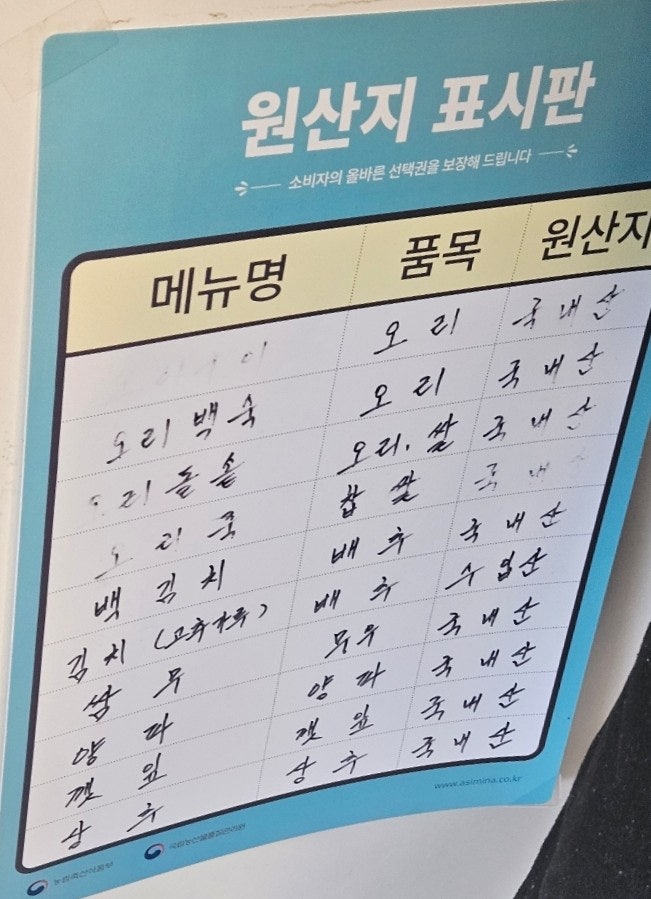 원산지 표시판
소비자의 올바른 선택권을 보장해 드립니다
메뉴명 품목 원산지
오리 국내산
오리백숙 오리 국내산
오리돌솥 오리, 쌀 국내산
오리죽 찹쌀 국내
백김치 배추 국내산
김치 (고추가루) 배추 수입산
쌈무 무우 국내산
양파 양파 국내산
깻잎 깻잎 국내산
상추 상추 국내산
www.asimina.co.kr
농림축산식품부 국립농산물품질관리원